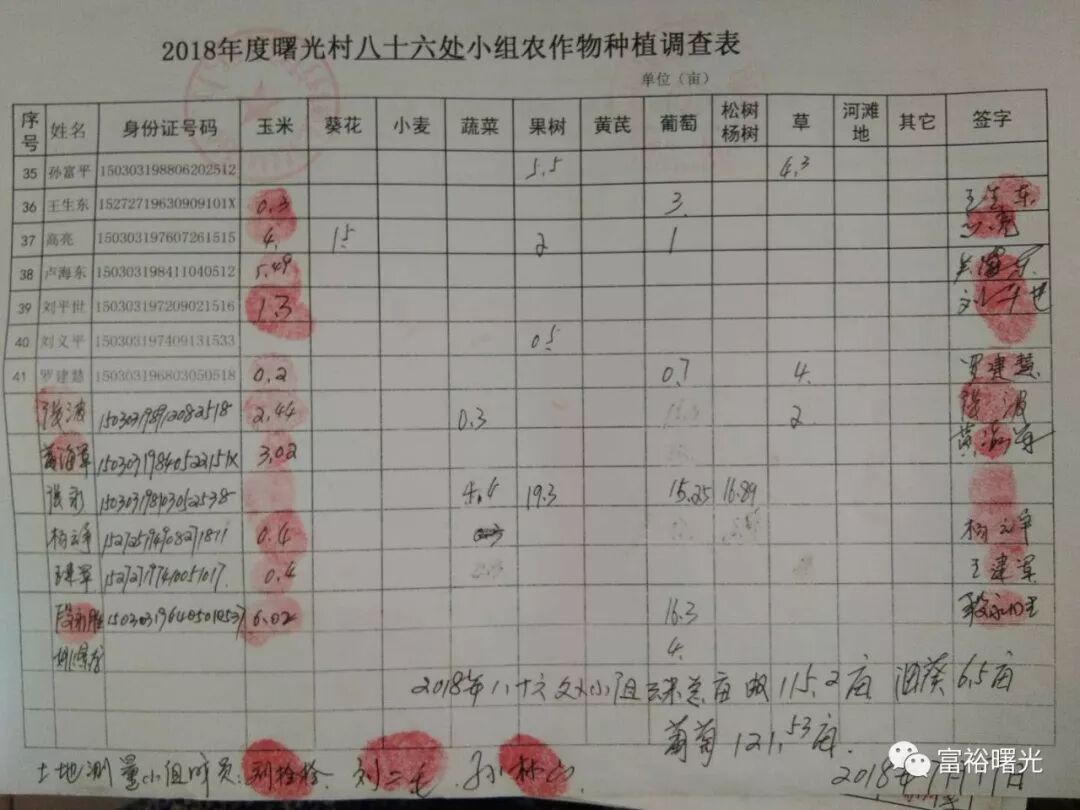 2018年度曙光村八十六处小组农作物种植调查表
单位（亩）
序号 姓名 身份证号码 玉米 葵花 小麦 蔬菜 果树 黄芪 葡萄 松树杨树 草 河滩地 其它 签字
35 孙富平 150303198806202512 5.5 4.3
36 王生东 15272719630909101X 0.3 3 王生东
37 高亮 150303197607261515 4 15 2 1 高亮
38 卢海东 150303198411040512 5.49
39 刘平世 150303197209021516 1.3 刘平世
40 刘义平 150303197409131533 0.5
41 罗建慧 150303196803050518 0.2 0.7 4 罗建慧
张波 2.44 0.3 2 张波
黄海军 15030319840522151X 3.02 黄海军
张永 4.4 19.3 15.25 16.89
0.4
王建军 0.4 王建军
段永胜 6.02 16.3 段永胜
4
2018年八十六处小组玉米总亩 115.2亩 油葵 6.5亩
葡萄 121.53亩
土地测量小组成员: 刘三毛 孙林山
富裕曙光